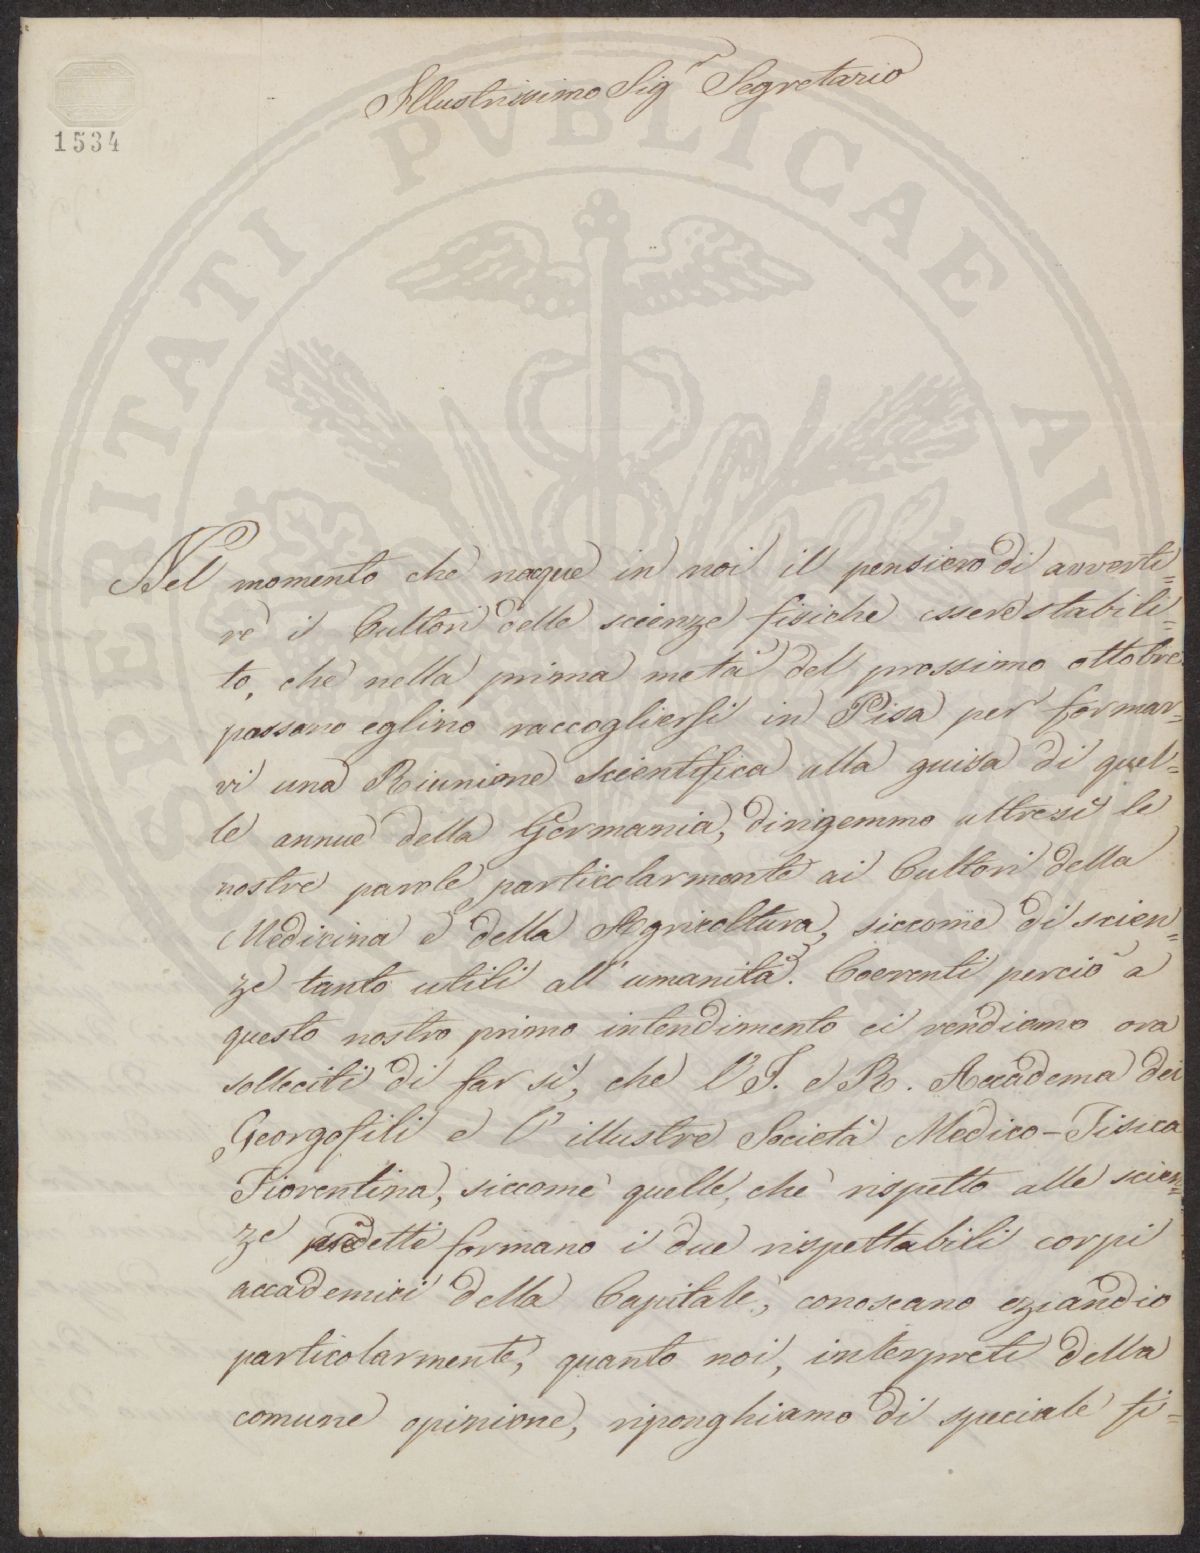 Illustrissimo Sig.r Segretario
1534
PROSPERITATI PVBLICAE AVGENDAE
Nel momento che naque in noi il pensiero di avverti=
re i Cultori delle scienze fisiche essere stabili=
to, che nella prima metà del prossimo ottobre
possano eglino raccogliersi in Pisa per formar=
vi una Riunione scientifica alla guisa di quel=
le annue della Germania, dirigemmo altresì le
nostre parole particolarmente ai Cultori della
Medicina e della Agricoltura, siccome di scien=
ze tanto utili all'umanità. Coerenti perciò a
questo nostro primo intendimento ci rendiamo ora
solleciti di far sì, che l'I. e R. Accadema dei
Georgofili e l'illustre Società Medico-Fisica
Fiorentina, siccome quelle, che rispetto alle scien=
ze predette formano i due rispettabili corpi
accademici della Capitale, conoscano eziandio
particolarmente, quanto noi, interpreti della
comune opinione, riponghiamo di speciale fi=